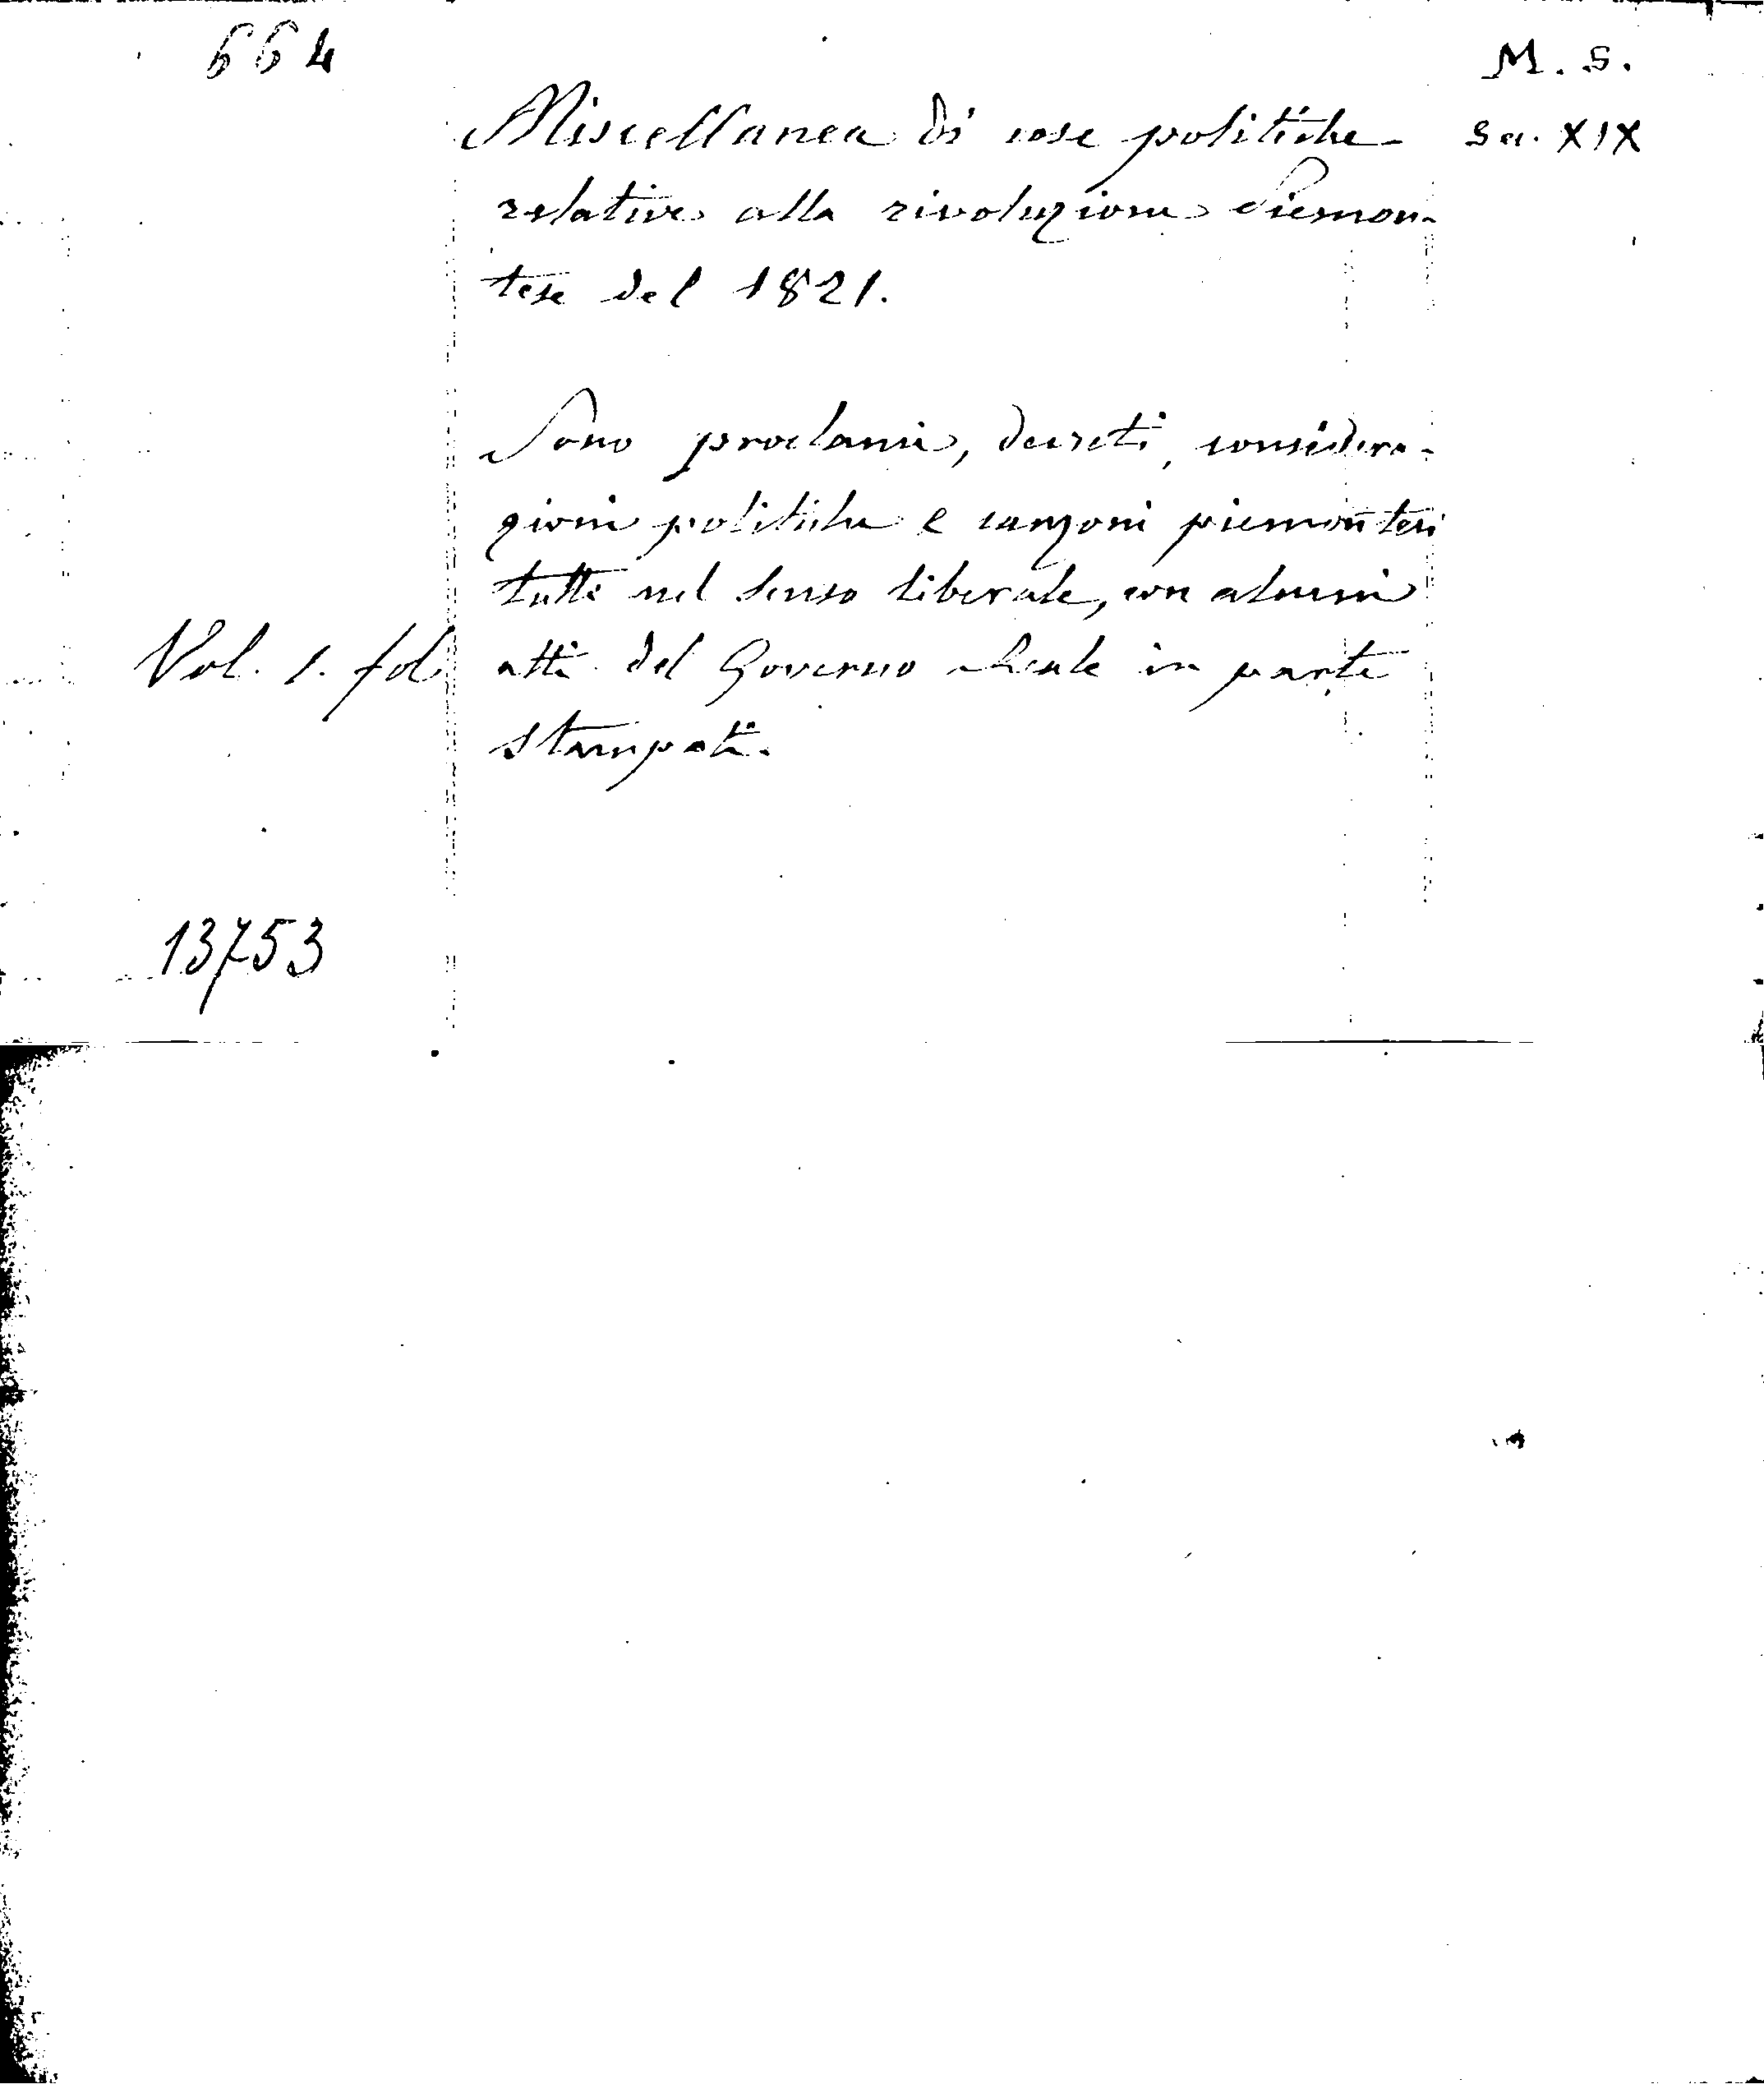 664
M. S.
Miscellanea di cose politiche
Sec. XIX
relative alla rivoluzione Piemon-
tese del 1821.
Sono proclami, decreti, considera-
zioni politiche e canzoni piemontesi
tutte nel senso liberale, con alcuni
Vol. 1. fol. atti del Governo Reale in parte
stampati.
13753